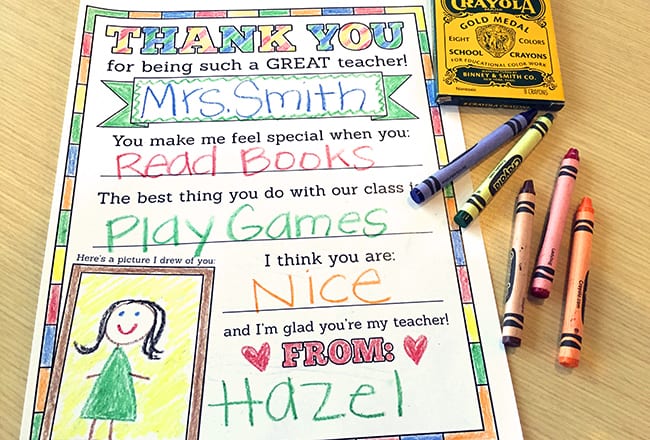 THANK YOU
for being such a GREAT teacher!
Mrs. Smith
You make me feel special when you:
Read Books
The best thing you do with our class
Play Games
Here's a picture I drew of you:
I think you are:
Nice
and I'm glad you're my teacher!
FROM:
Hazel
CRAYOLA
GOLD MEDAL
EIGHT COLORS
SCHOOL CRAYONS
FOR EDUCATIONAL COLOR WORK
BINNEY & SMITH CO.
Nontoxic
8 CRAYONS
Crayola